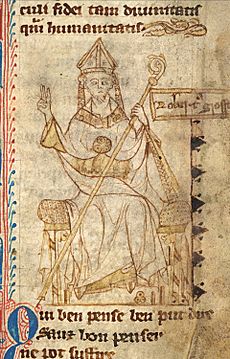 culi fidei tam diuinitatis
qui humanitatis.
Robert' grosse
Qui ben pense ben put dire
Sanz bon penser
ne pot suffire